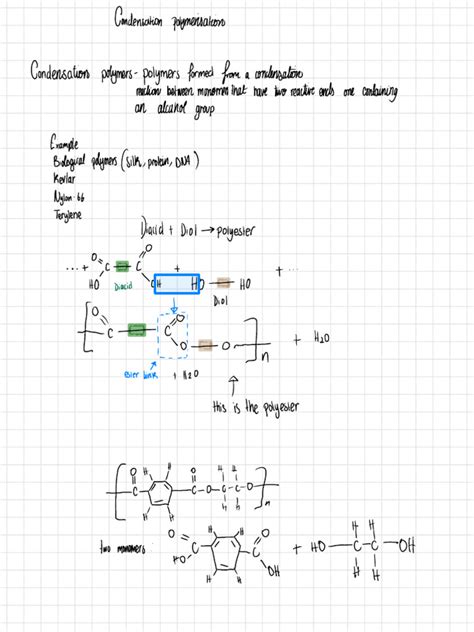 Condensation polymerisations
Condensation polymers - polymers formed from a condensation
reaction between monomers that have two reactive ends one containing
an alcohol group
Example
Biological polymers (silk, protein, DNA)
Kevlar
Nylon 66
Terylene
Diacid + Diol → polyester
O O
...+ C C + +...
HO Diacid OH HO HO
Diol
O O
C C O O n + H2O
Ester link + H2O
this is the polyester
O H H O H H
C C-O-C-C-O n
H H H H
two monomers
O O H H
HO C H H C OH + HO-C-C-OH
H H H H